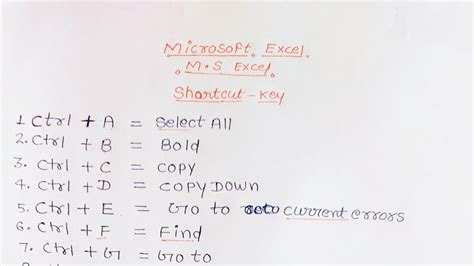 Microsoft Excel.
M.S Excel.
Shortcut-key
1. Ctrl + A = Select All
2. Ctrl + B = Bold
3. Ctrl + C = COPY
4. Ctrl + D = COPY DOWN
5. Ctrl + E = Go to current errors
6. Ctrl + F = Find
7. Ctrl + G = Go to